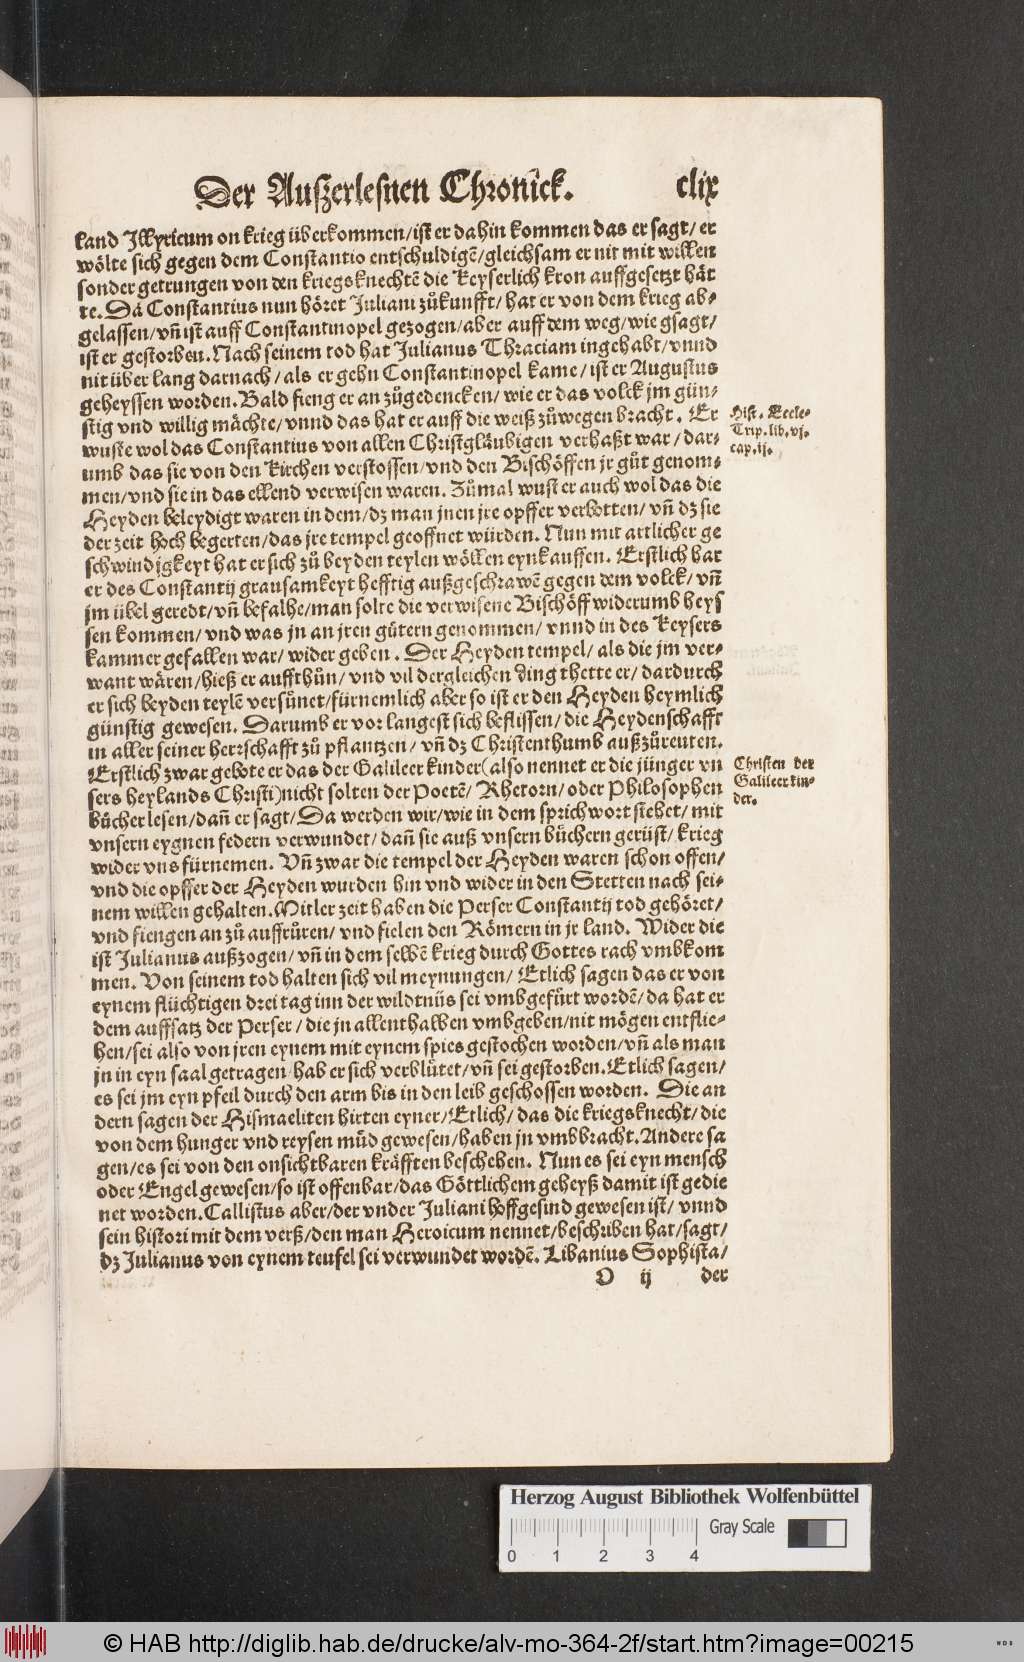 Der Außerlesnen Chronick. clix
land Jllyricum on krieg überkommen/ist er dahin kommen das er sagt/er
wölte sich gegen dem Constantio entschuldigẽ/gleichsam er nit mit willen
sonder getrungen von den kriegsknechtẽ die Keyserlich kron auffgesetzt hät
te. Da Constantius nun höret Juliani zůkunfft/hat er von dem krieg ab-
gelassen/vñ ist auff Constantinopel gezogen/aber auff dem weg/wie gsagt/
ist er gestorben. Nach seinem tod hat Julianus Thraciam ingehabt/vnnd
nit über lang darnach/als er gehn Constantinopel kame/ist er Augustus
geheyssen worden. Bald fieng er an zůgedencken/wie er das volck jm gün-
stig vnd willig mächte/vnnd das hat er auff die weiß zůwegen bracht. Er
wuste wol das Constantius von allen Christgläubigen verhaßt war/dar-
umb das sie von den Kirchen verstossen/vnd den Bischöffen jr gůt genom-
men/vnd sie in das ellend verwisen waren. Zůmal wust er auch wol das die
Heyden beleydigt waren in dem/dz man jnen jre opffer verbotten/vñ dz sie
der zeit hoch begerten/das jre tempel geoffnet würden. Nun mit artlicher ge
schwindigkeyt hat er sich zů beyden teylen wöllen eynkauffen. Erstlich hat
er des Constantij grausamkeyt hefftig außgeschrawẽ gegen dem volck/vñ
jm übel geredt/vñ befalhe/man solte die verwisene Bischöff widerumb heys
sen kommen/vnd was jn an jren gütern genommen/vnnd in des Keysers
kammer gefallen war/wider geben. Der Heyden tempel/als die jm ver-
want wären/hieß er auffthůn/vnd vil dergleichen ding thette er/dardurch
er sich beyden teylẽ versůnet/fürnemlich aber so ist er den Heyden heymlich
günstig gewesen. Darumb er vor langest sich beflissen/die Heydenschafft
in aller seiner herrschafft zů pflantzen/vñ dz Christenthumb außzůreuten.
Erstlich zwar gebote er das der Galileer kinder(also nennet er die jünger vn
sers heylands Christi)nicht solten der Poetẽ/Rhetorn/oder Philosophen
bücher lesen/dañ er sagt/Da werden wir/wie in dem sprichwort stehet/mit
vnsern eygnen federn verwundet/dañ sie auß vnsern büchern gerüst/krieg
wider vns fürnemen. Vñ zwar die tempel der Heyden waren schon offen/
vnd die opffer der Heyden wurden hin vnd wider in den Stetten nach sei-
nem willen gehalten. Mitler zeit haben die Perser Constantij tod gehöret/
vnd fiengen an zů auffrůren/vnd fielen den Römern in jr land. Wider die
ist Julianus außzogen/vñ in dem selbẽ krieg durch Gottes rach vmbkom
men. Von seinem tod halten sich vil meynungen/Etlich sagen das er von
eynem flüchtigen drei tag inn der wildtnüs sei vmbgefürt wordẽ/da hat er
dem auffsatz der Perser/die jn allenthalben vmbgeben/nit mögen entflie-
hen/sei also von jren eynem mit eynem spies gestochen worden/vñ als man
jn in eyn saal getragen hab er sich verblůtet/vñ sei gestorben. Etlich sagen/
es sei jm eyn pfeil durch den arm bis in den leib geschossen worden. Die an
dern sagen der Hismaeliten hirten eyner/Etlich/das die kriegsknecht/die
von dem hunger vnd reysen müd gewesen/haben jn vmbbracht. Andere sa
gen/es sei von den onsichtbaren kräfften beschehen. Nun es sei eyn mensch
oder Engel gewesen/so ist offenbar/das Göttlichem geheyß damit ist gedie
net worden. Callistus aber/der vnder Juliani hoffgesind gewesen ist/vnnd
sein histori mit dem verß/den man Heroicum nennet/beschriben hat/sagt/
dz Julianus von eynem teufel sei verwundet wordẽ. Libanius Sophista/
O ij der
Hist. Eccle-
Trip. lib. vj.
cap. ij.
Christen der
Galileer kin-
der.
Herzog August Bibliothek Wolfenbüttel
0 1 2 3 4 Gray Scale
© HAB http://diglib.hab.de/drucke/alv-mo-364-2f/start.htm?image=00215